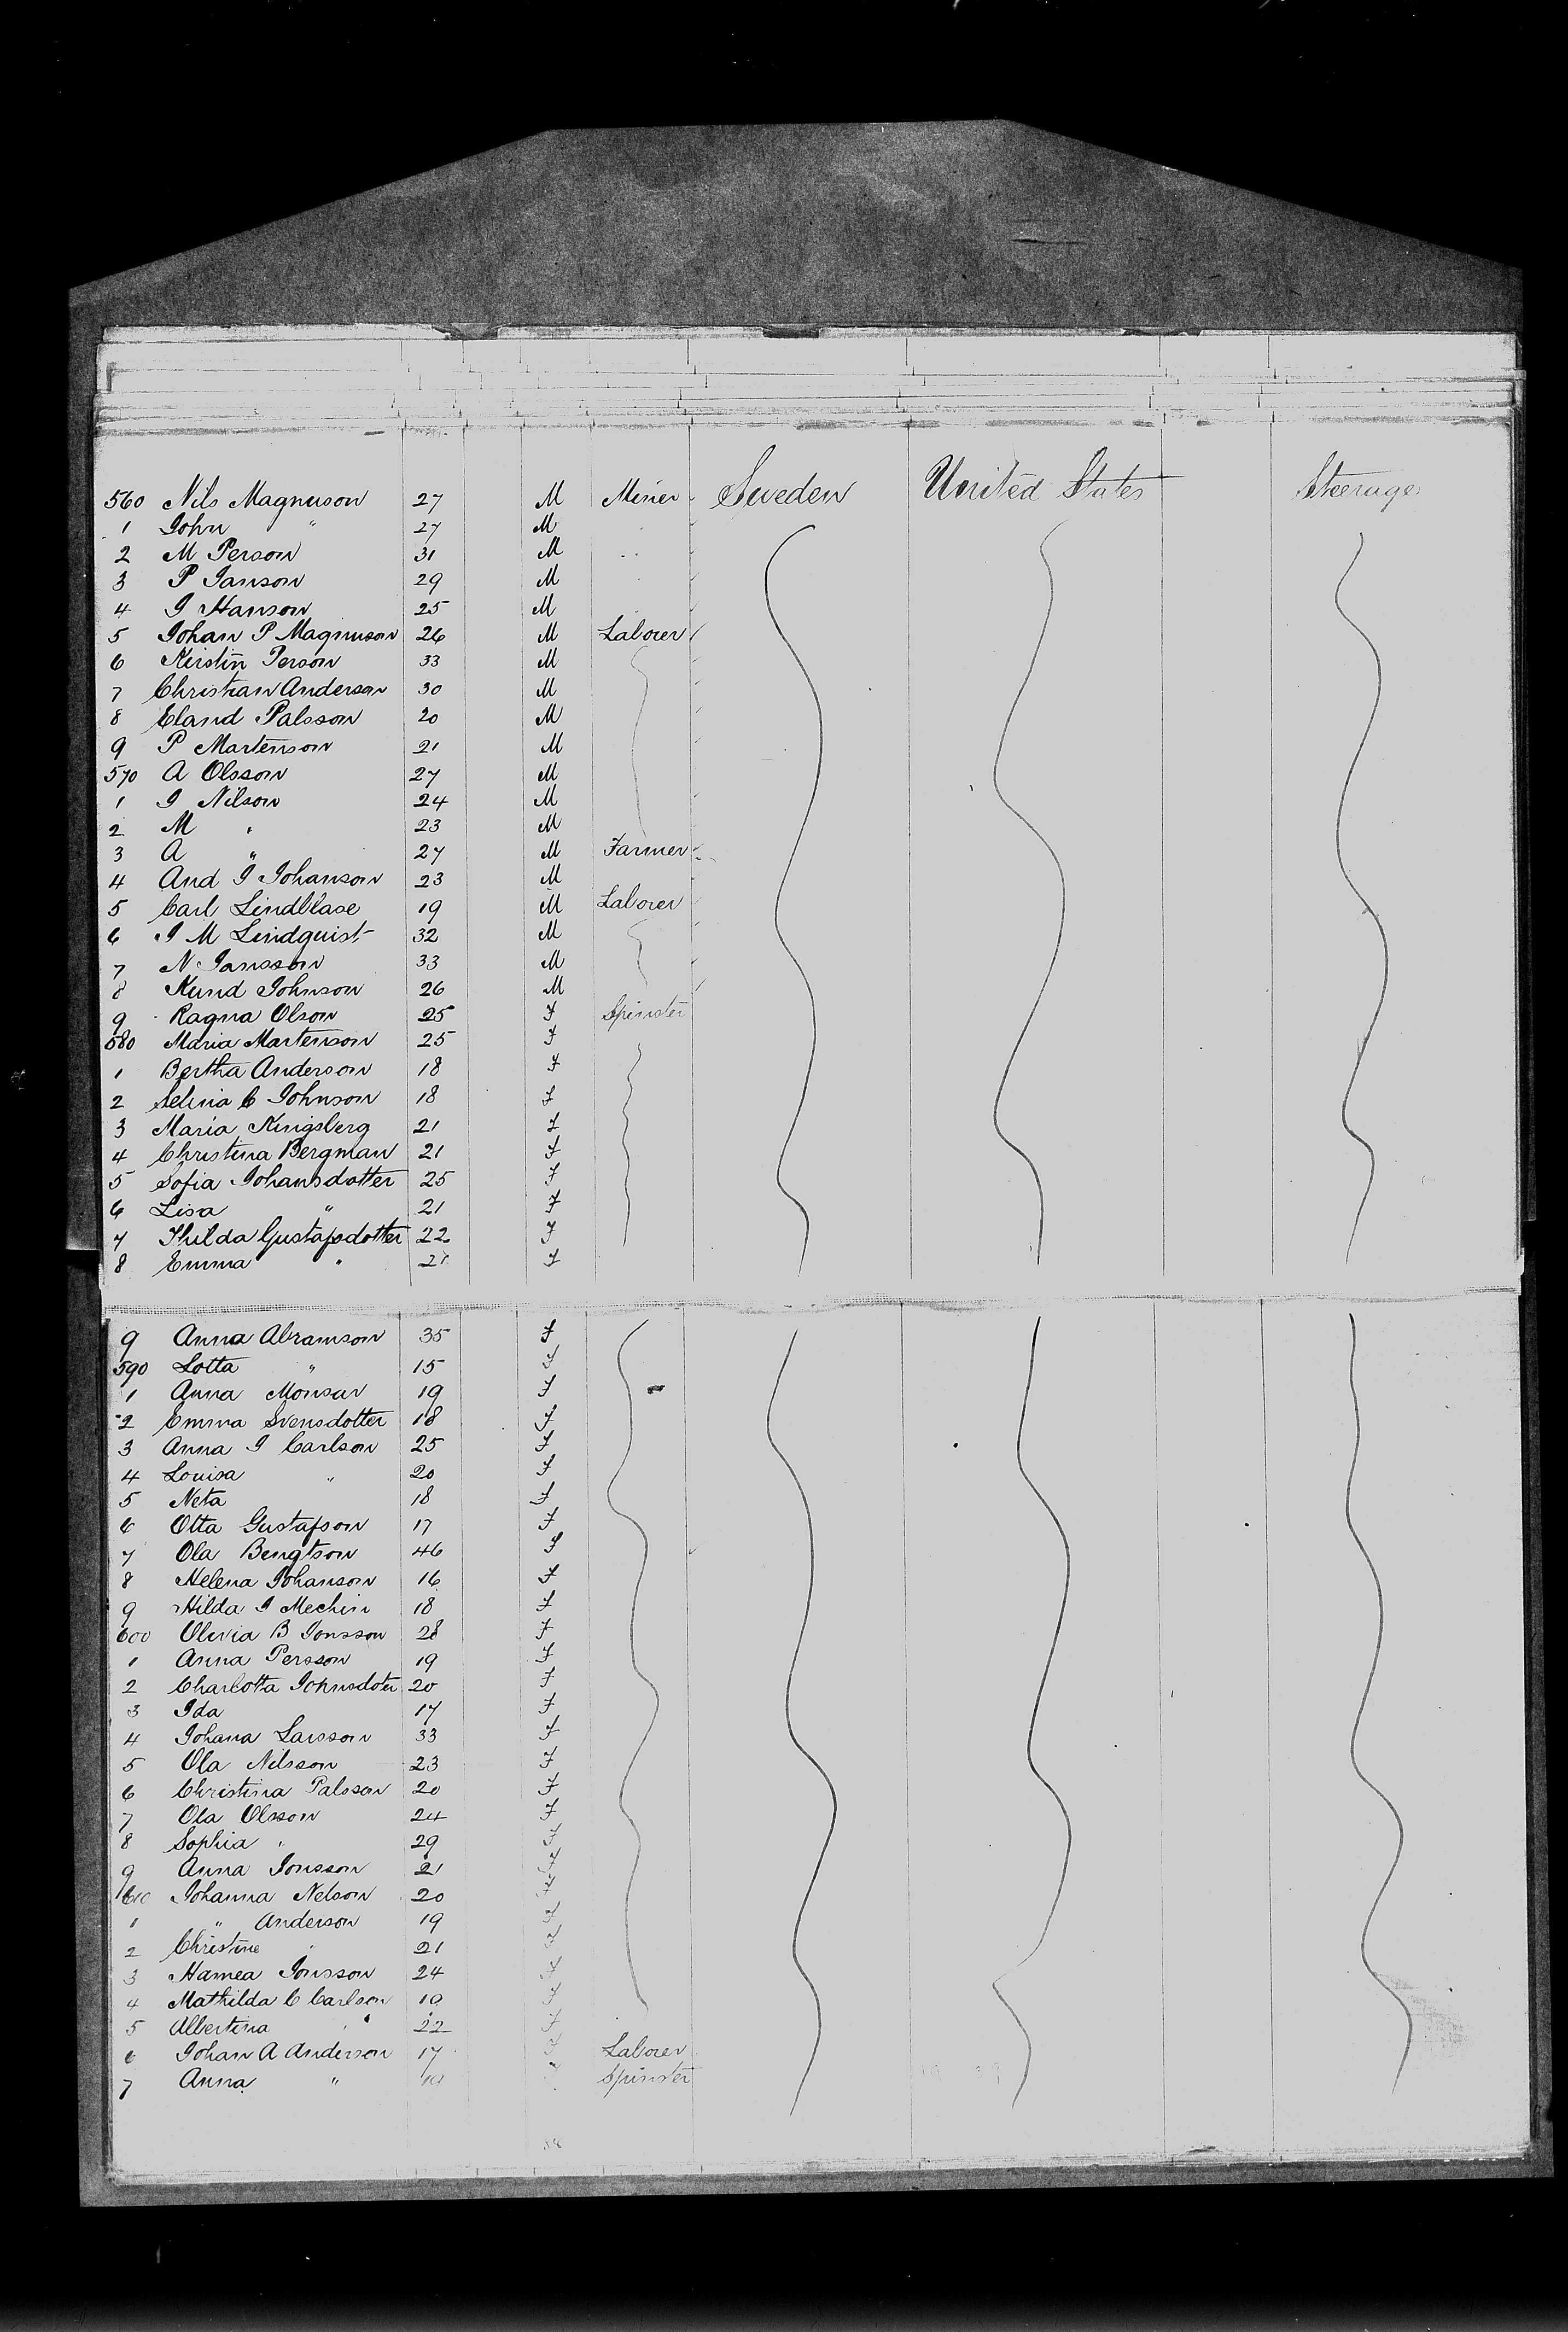 560 Nils Magnuson 27 M Miner Sweden United States Steerage
1 John " 27 M
2 M Person 31 M
3 P Janson 29 M
4 J Hanson 25 M
5 Johan P Magnuson 26 M Laborer
6 Kirstin Person 33 M
7 Christian Anderson 30 M
8 Eland Palsson 20 M
9 P Martenson 21 M
570 A Olsson 27 M
1 J Nilson 24 M
2 M " 23 M
3 A " 27 M Farmer
4 And J Johanson 23 M
5 Carl Lindblase 19 M Laborer
6 J M Lindquist 32 M
7 N Jansson 33 M
8 Kund Johnson 26 M
9 Ragna Olson 25 F Spinster
580 Maria Martenson 25 F
1 Bertha Anderson 18 F
2 Selina C Johnson 18 F
3 Maria Kingsberg 21 F
4 Christina Bergman 21 F
5 Sofia Johansdotter 25 F
6 Lisa " 21 F
7 Thilda Gustafsdotter 22 F
8 Emma " 21 F
9 Anna Abramson 35 F
590 Lotta " 15 F
1 Anna Monsar 19 F
2 Emma Svensdotter 18 F
3 Anna J Carlson 25 F
4 Louisa " 20 F
5 Neta 18 F
6 Otta Gustafson 17 F
7 Ola Bengtson 46 F
8 Helena Johanson 16 F
9 Hilda J Mechin 18 F
600 Olivia B Jonsson 28 F
1 Anna Persson 19 F
2 Charlotta Johnsdoter 20 F
3 Ida 17 F
4 Johana Larsson 33 F
5 Ola Nilsson 23 F
6 Christina Palsson 20 F
7 Ola Olsson 24 F
8 Sophia " 29 F
9 Anna Jonsson 21 F
610 Johanna Nelson 20 F
1 " Anderson 19 F
2 Christine " 21 F
3 Hamea Jonsson 24 F
4 Mathilda C Carlson 19 F
5 Albertina " 22 F
6 Johan A Anderson 17 F Laborer
7 Anna " Spinster